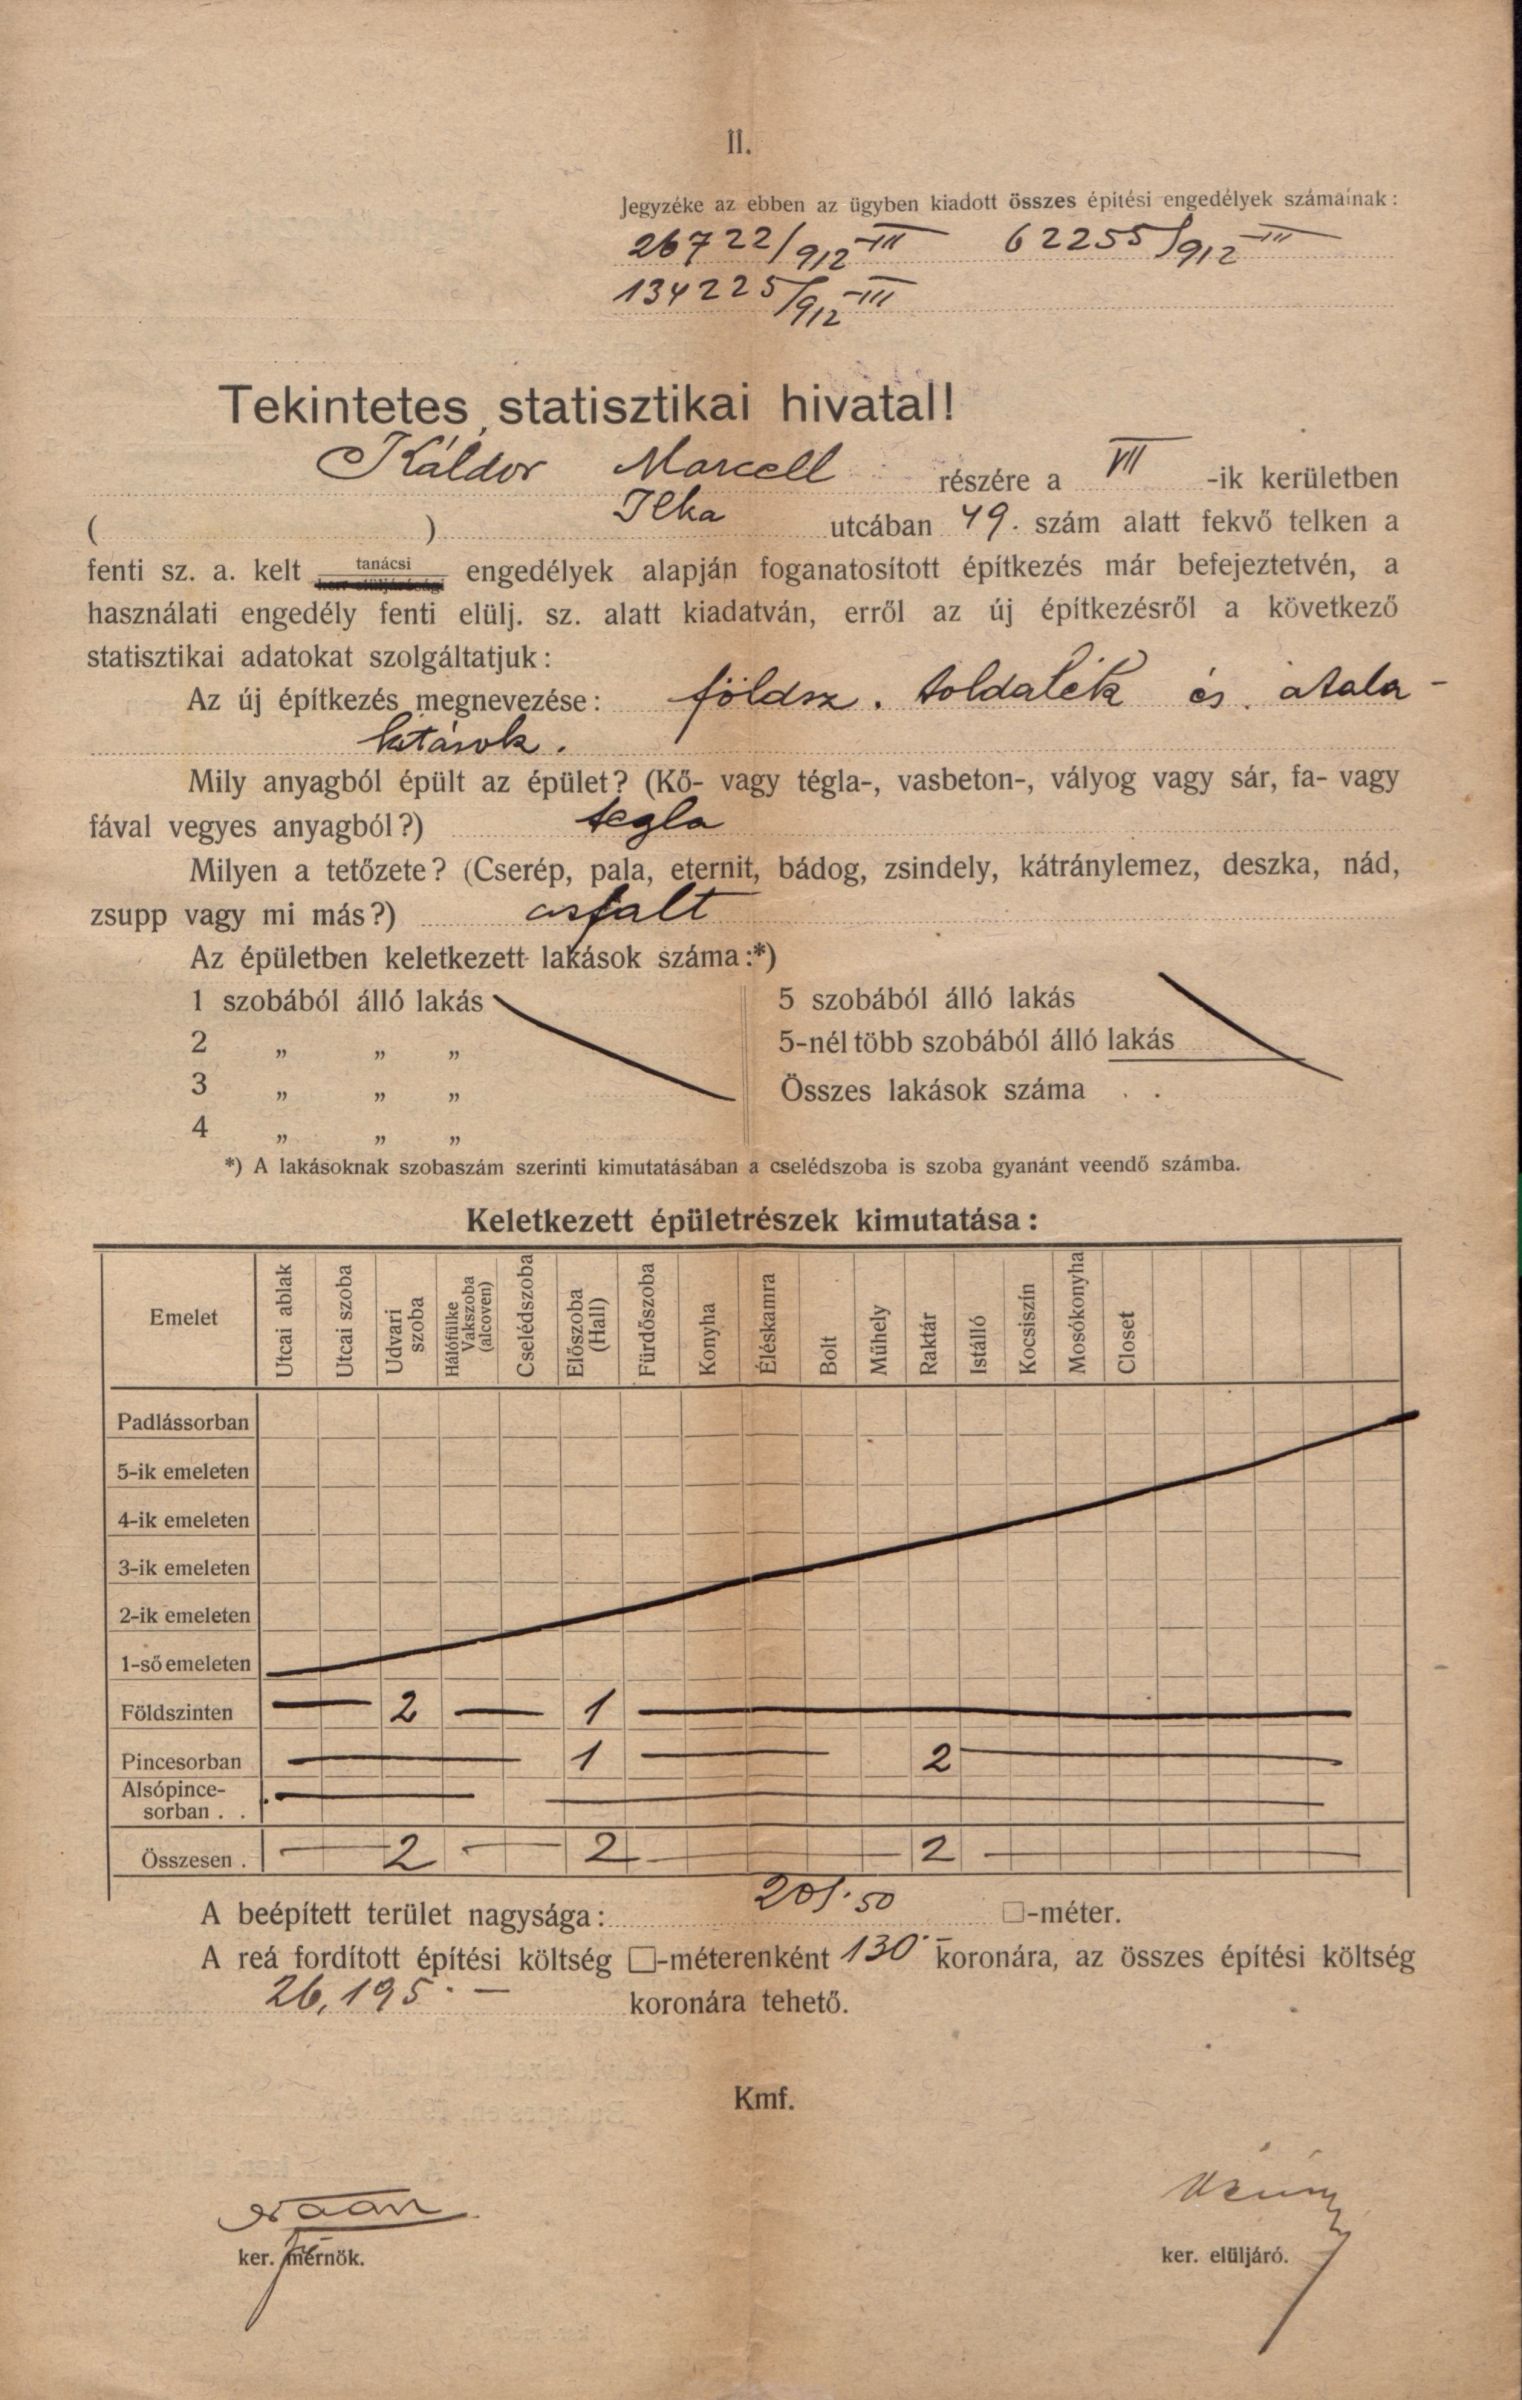 II.
Jegyzéke az ebben az ügyben kiadott összes építési engedélyek számainak:
26722/912-III 62255/912-III
134225/912-III
Tekintetes statisztikai hivatal!
Káldor Marcell részére a VII -ik kerületben
( ) Ilka utcában 49. szám alatt fekvő telken a
fenti sz. a. kelt tanácsi engedélyek alapján foganatosított építkezés már befejeztetvén, a
használati engedély fenti elülj. sz. alatt kiadatván, erről az új építkezésről a következő
statisztikai adatokat szolgáltatjuk:
Az új építkezés megnevezése: földsz. toldalék és átala-
kitások.
Mily anyagból épült az épület? (Kő- vagy tégla-, vasbeton-, vályog vagy sár, fa- vagy
fával vegyes anyagból?) tegla
Milyen a tetőzete? (Cserép, pala, eternit, bádog, zsindely, kátránylemez, deszka, nád,
zsupp vagy mi más?) asfalt
Az épületben keletkezett lakások száma:*)
1 szobából álló lakás 5 szobából álló lakás
2 „ „ „ 5-nél több szobából álló lakás
3 „ „ „ Összes lakások száma . .
4 „ „ „
*) A lakásoknak szobaszám szerinti kimutatásában a cselédszoba is szoba gyanánt veendő számba.
Keletkezett épületrészek kimutatása:
Emelet Utcai ablak Utcai szoba Udvari szoba Hálófülke Vakszoba (alcoven) Cselédszoba Előszoba (Hall) Fürdőszoba Konyha Éléskamra Bolt Műhely Raktár Istálló Kocsiszín Mosókonyha Closet
Padlássorban
5-ik emeleten
4-ik emeleten
3-ik emeleten
2-ik emeleten
1-ső emeleten
Földszinten — 2 — 1 —
Pincesorban — 1 — 2 —
Alsópince-
sorban . . — —
Összesen . — 2 — 2 — 2 —
A beépített terület nagysága: 201·50 □-méter.
A reá fordított építési költség □-méterenként 130·– koronára, az összes építési költség
26,195·— koronára tehető.
Kmf.
ker. mérnök. ker. elüljáró.